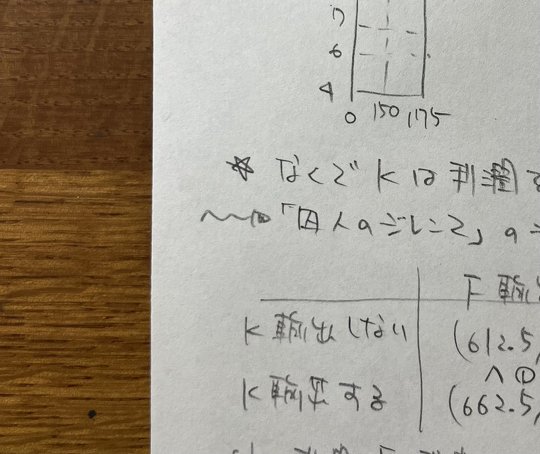 7
6
4
0 150 1175
なくで Kは利潤
「囚人のジレンマ」の
F 輸出
K 輸出しない (612.5,
∧ ①
K 輸出する (662.5,